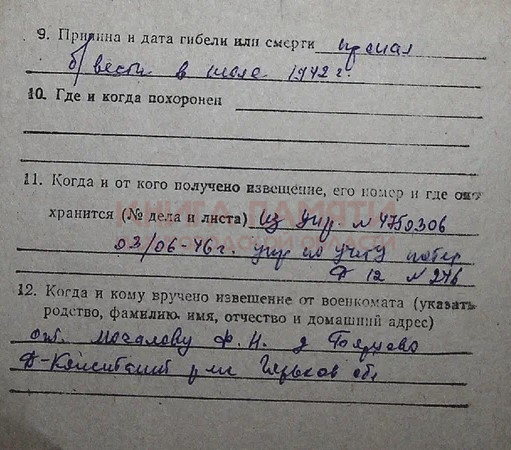 9. Причина и дата гибели или смерти пропал
б/вести в июле 1942 г.
10. Где и когда похоронен
11. Когда и от кого получено извещение, его номер и где оно
хранится (№ дела и листа) из упр № 4750306
КНИГА ПАМЯТИ
03/06-46 г. упр по учету потер
Д 12 № 246
12. Когда и кому вручено извещение от военкомата (указать
родство, фамилию, имя, отчество и домашний адрес)
отц. Мочалову Ф. Н. д
Д-Константин р-н Горьков обл